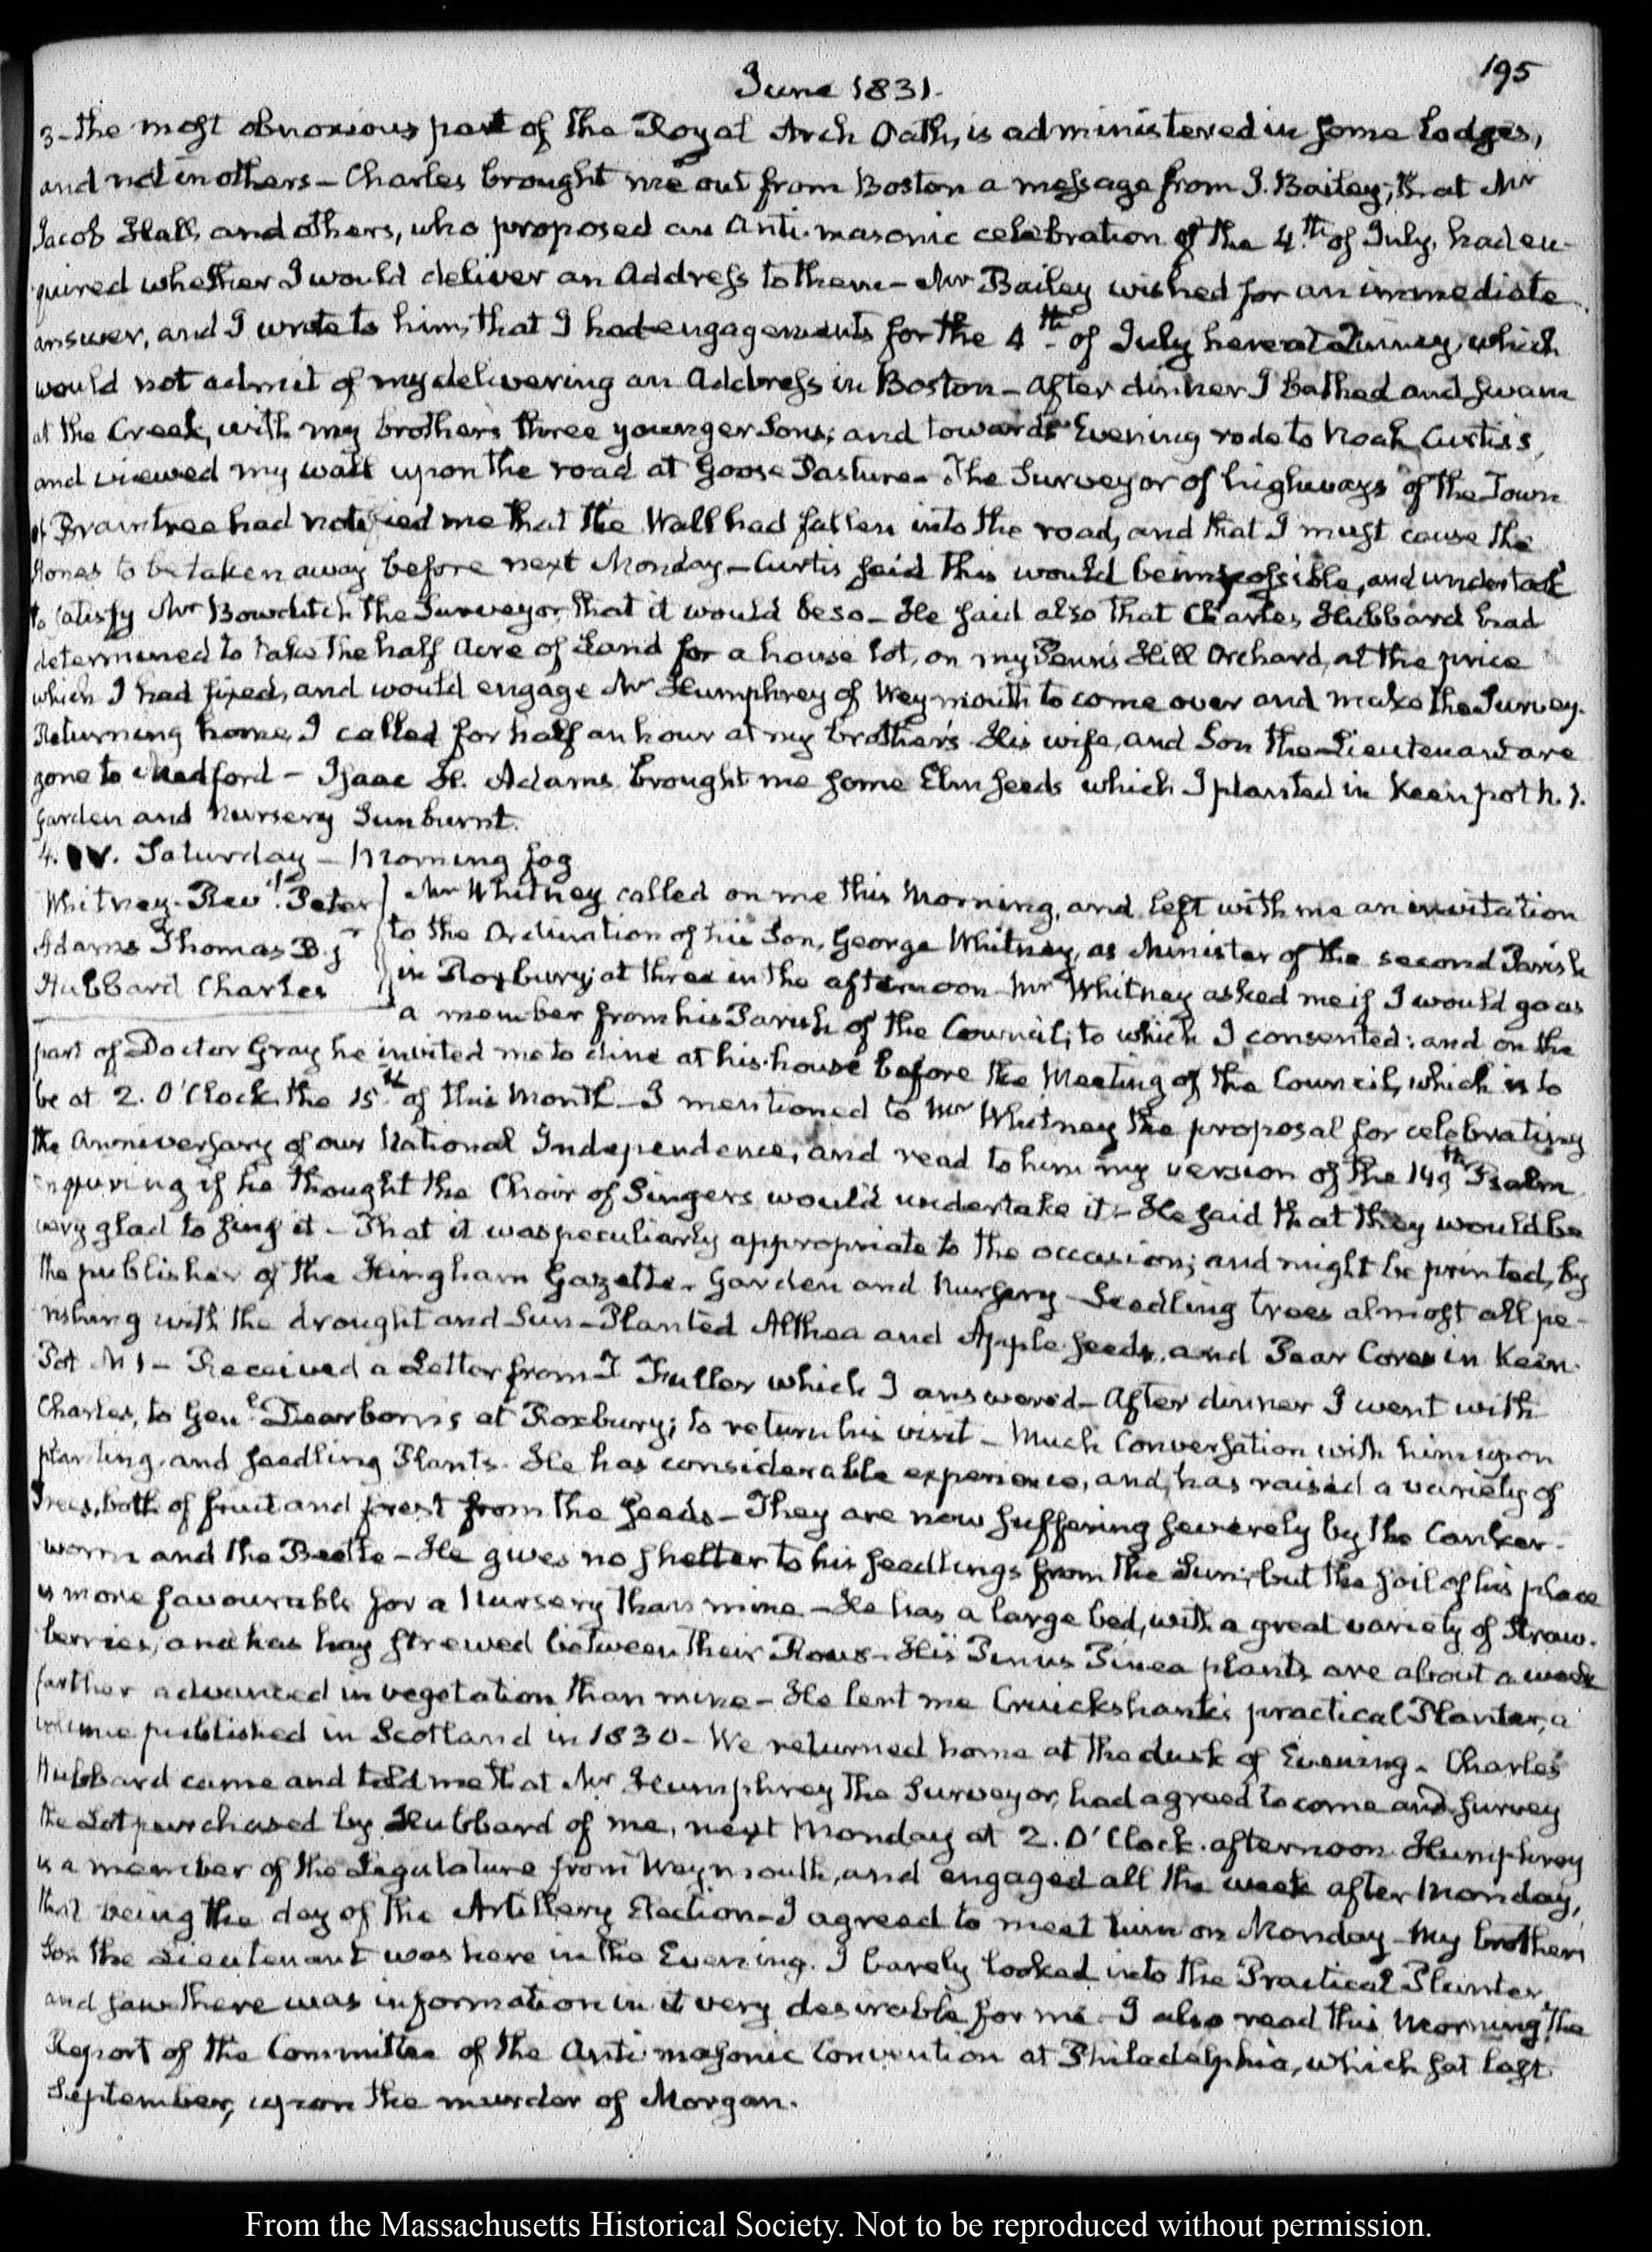 195
June 1831.
3- the most obnoxious part of the Royal Arch Oath, is administered in some Lodges,
and not in others - Charles brought me out from Boston a message from J. Bailey, that Mr
Jacob Hall, and others, who proposed an Anti-masonic celebration of the 4th of July, had en-
quired whether I would deliver an Address to them - Mr Bailey wished for an immediate
answer, and I wrote to him, that I had engagements for the 4th of July here at Quincy, which
would not admit of my delivering an Address in Boston - After dinner I bathed and swam
at the Creek, with my brother's three younger Sons; and towards Evening rode to Noah Curtis's,
and viewed my wall upon the road at Goose Pasture - The Surveyor of highways of the Town
of Braintree had notified me that the Wall had fallen into the road, and that I must cause the
stones to be taken away before next Monday - Curtis said this would be impossible, and undertook
to satisfy Mr Bowditch the Surveyor, that it would be so - He said also that Charles Hubbard had
determined to take the half Acre of Land for a house lot, on my Penn's Hill Orchard, at the price
which I had fixed, and would engage Mr Humphrey of Weymouth to come over and make the Survey.
Returning home, I called for half an hour at my brother's. His wife, and Son the Lieutenant are
gone to Medford - Isaac H. Adams brought me some Elm seeds which I planted in Keen pot N. 1.
Garden and Nursery Sunburnt.
4. IV. Saturday - Morning fog
Whitney - Revd. Peter
Adams Thomas B. jr
Hubbard Charles
Mr Whitney called on me this Morning, and left with me an invitation
to the Ordination of his Son, George Whitney, as Minister of the second Parish
in Roxbury; at three in the afternoon - Mr Whitney asked me if I would go as
a member from his Parish of the Council; to which I consented: and on the
part of Doctor Gray he invited me to dine at his house before the Meeting of the Council, which is to
be at 2. O'Clock the 15th of this Month - I mentioned to Mr Whitney the proposal for celebrating
the Anniversary of our National Independence, and read to him my version of the 149th Psalm
inquiring if he thought the Choir of Singers would undertake it - He said that they would be
very glad to sing it - That it was peculiarly appropriate to the occasion; and might be printed, by
the publisher of the Hingham Gazette - Garden and Nursery - Seedling trees almost all pe-
rishing with the drought and Sun - Planted Althea and Apple seeds, and Pear Cores in Keen-
Pot N 1 - Received a Letter from T Fuller which I answered - After dinner I went with
Charles, to Genl Dearborn's at Roxbury; to return his visit - Much Conversation with him upon
planting, and seedling Plants. He has considerable experience, and, has raised a variety of
Trees, both of fruit and forest from the seeds - They are now suffering severely by the Canker-
worm and the Beetle - He gives no shelter to his seedlings from the Sun; but the soil of his place
is more favourable for a Nursery than mine - He has a large bed, with a great variety of Straw-
berries, and has hay strewed between their Rows - His Pinus Pinea plants are about a week
farther advanced in vegetation than mine - He lent me Cruickshank's practical Planter, a
volume published in Scotland in 1830 - We returned home at the dusk of Evening - Charles
Hubbard came and told me that Mr Humphrey the Surveyor, had agreed to come and survey
the Lot purchased by Hubbard of me, next Monday at 2. O'Clock afternoon. Humphrey
is a member of the Legislature from Weymouth, and engaged all the week after Monday,
that being the day of the Artillery Election - I agreed to meet him on Monday - My brother's
Son the Lieutenant was here in the Evening. I barely looked into the Practical Planter,
and saw there was information in it very desirable for me - I also read this Morning, the
Report of the Committee of the Anti-masonic Convention at Philadelphia, which sat last
September, upon the murder of Morgan.
From the Massachusetts Historical Society. Not to be reproduced without permission.